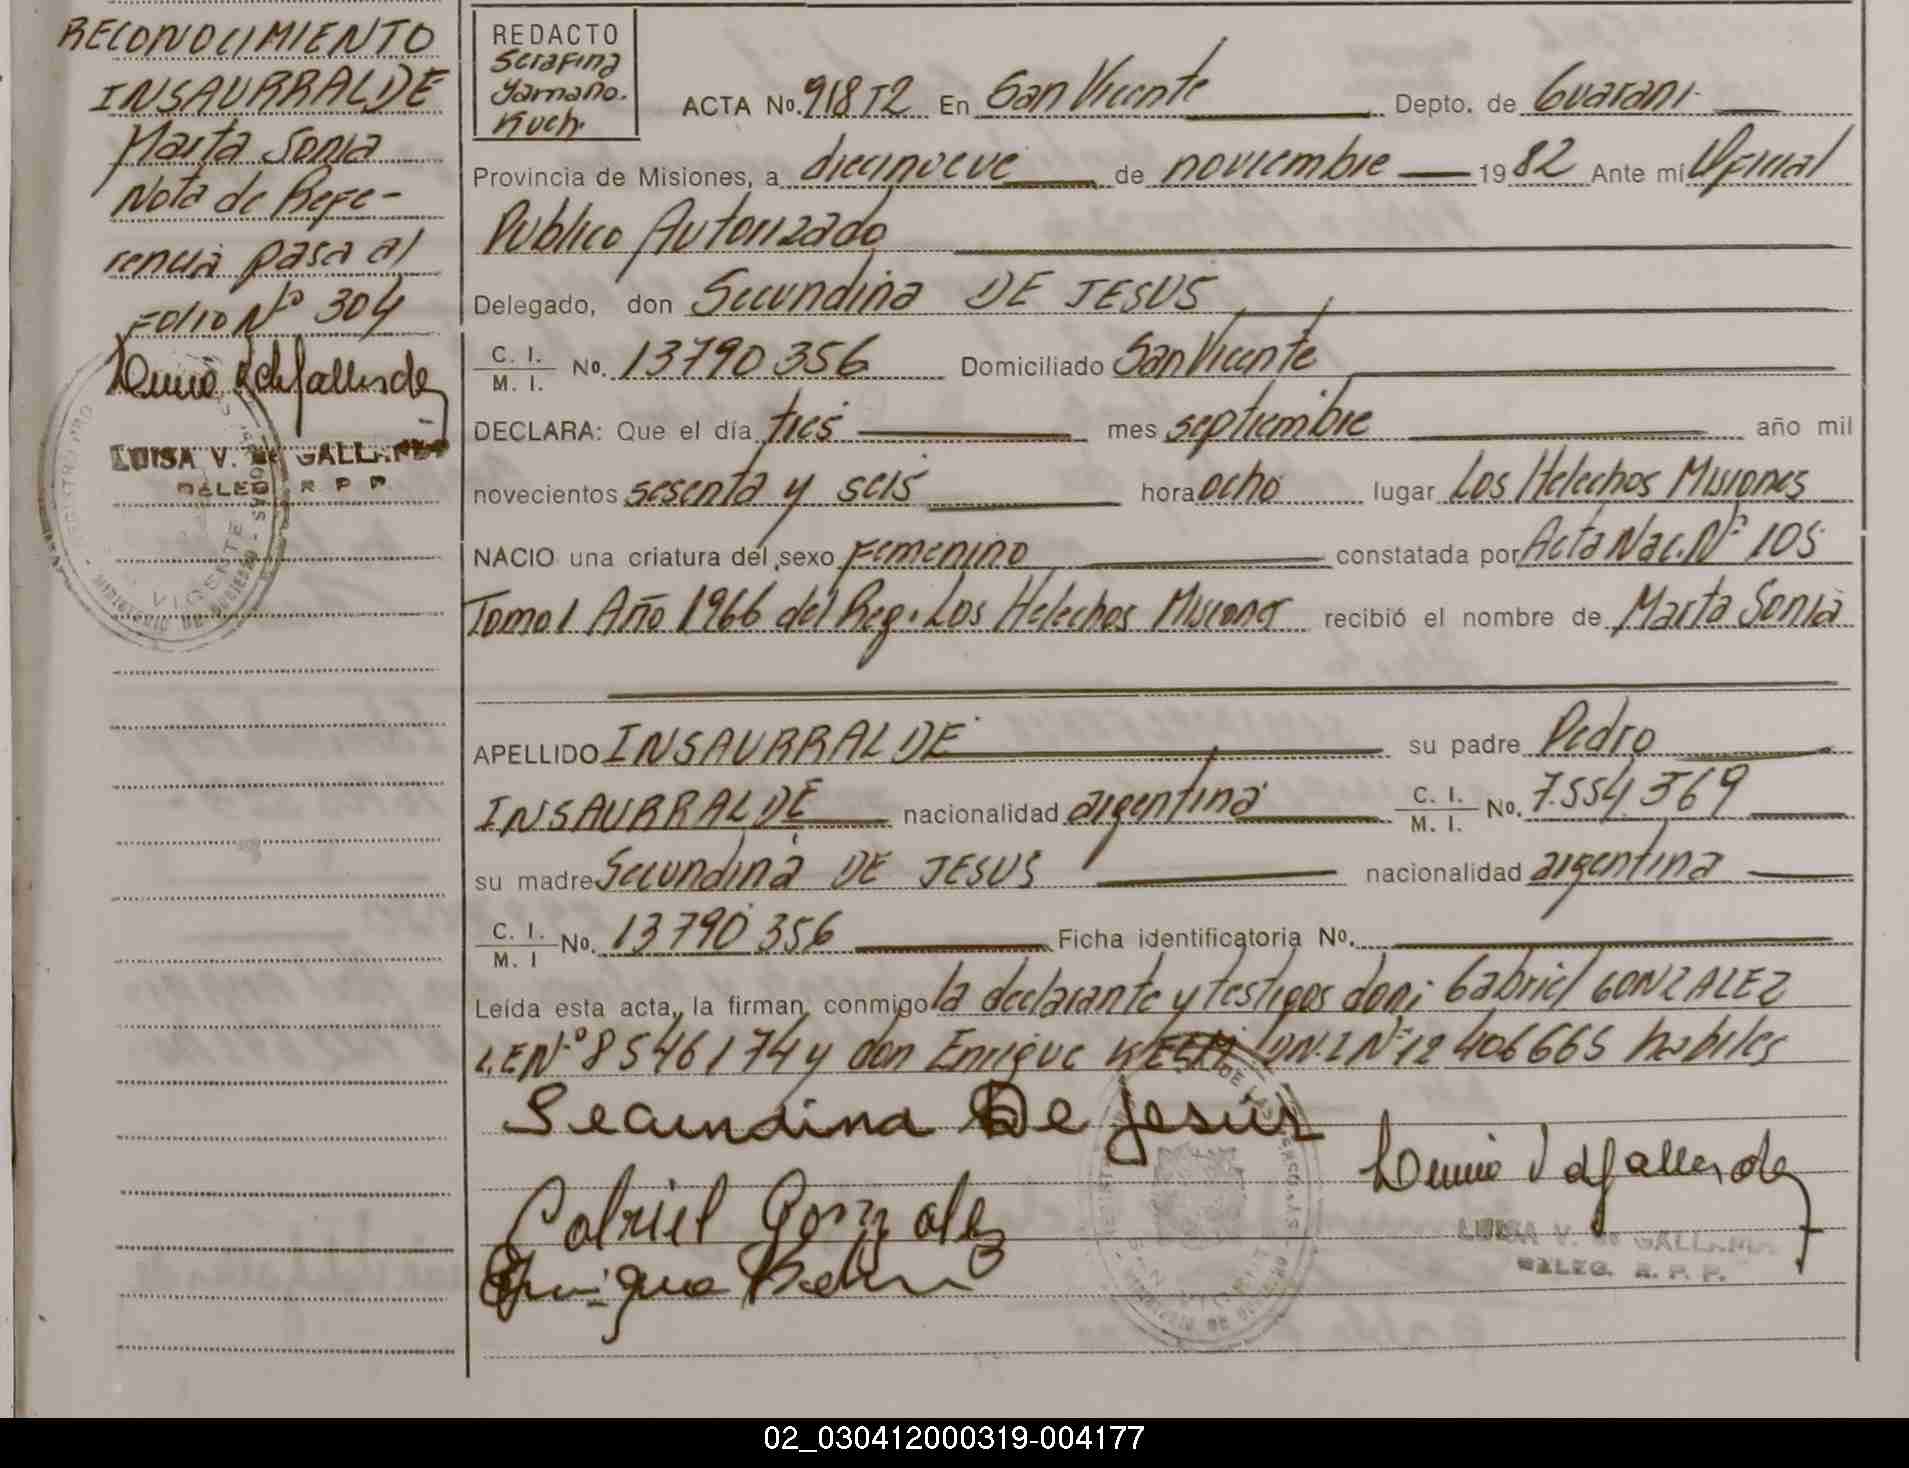 RECONOCIMIENTO
INSAURRALDE
Marta Sonia
Nota de Refe-
rencia pasa al
Folio Nº 304
LUISA V. de GALLARDO
DELEG. R P P
REDACTO
Serafina
Yamaño.
Kuch.
ACTA No. 918 T2 En San Vicente Depto. de Guarani
Provincia de Misiones, a diecinueve de noviembre 1982 Ante mi Oficial
Publico Autorizado
Delegado, don Secundina DE JESUS
C. I. / M. I. No. 13790 356 Domiciliado San Vicente
DECLARA: Que el día tres mes septiembre año mil
novecientos sesenta y seis hora ocho lugar Los Helechos Misiones
NACIO una criatura del sexo Femenino constatada por Acta Nac. Nº 105
Tomo 1 Año 1966 del Reg. Los Helechos Misiones recibió el nombre de Marta Sonia
APELLIDO INSAURRALDE su padre Pedro
INSAURRALDE nacionalidad argentina C. I. / M. I. No. 7.554.369
su madre Secundina DE JESUS nacionalidad argentina
C. I. / M. I No. 13790 356 Ficha identificatoria No.
Leída esta acta, la firman conmigo la declarante y testigos don: Gabriel GONZALEZ
L.E Nº 8546174 y don Enrique D.N.I Nº 12 406665 habiles
Secundina De Jesús
Gabriel Gonzalez
Enrique
LUISA V. de GALLARDO
DELEG. R. P. P.
02_030412000319-004177